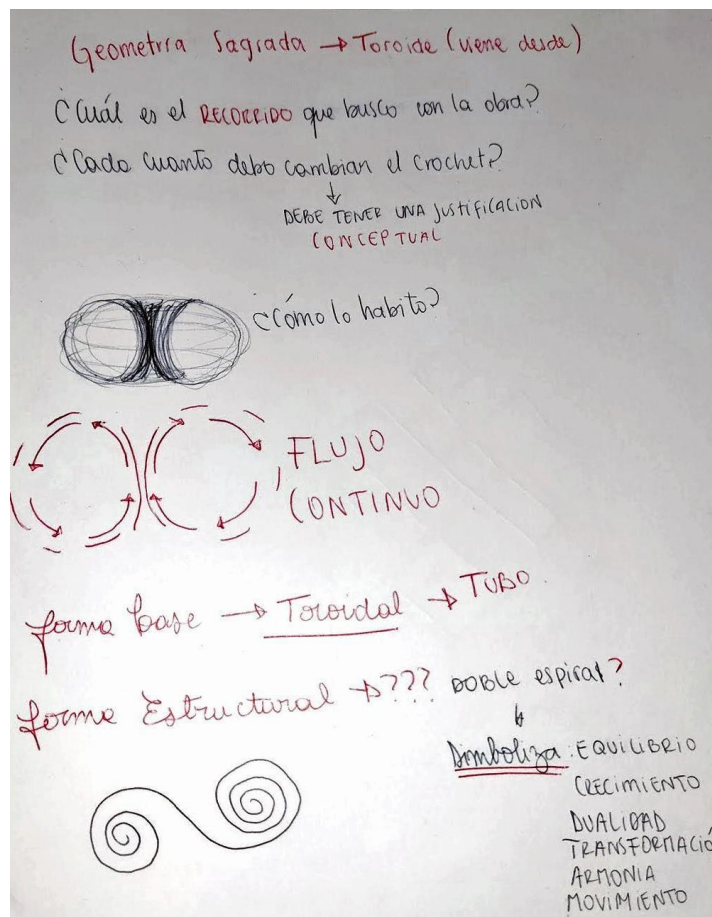 Geometría Sagrada → Toroide (viene desde)
¿Cuál es el RECORRIDO que busco con la obra?
¿Cada cuanto debo cambian el crochet?
↓
DEBE TENER UNA JUSTIFICACION
CONCEPTUAL
¿Cómo lo habito?
FLUJO
CONTINUO
forma base → Toroidal → TUBO
forma Estructural → ??? DOBLE espiral?
↓
Simboliza: EQUILIBRIO
CRECIMIENTO
DUALIDAD
TRANSFORMACIÓ
ARMONIA
MOVIMIENTO